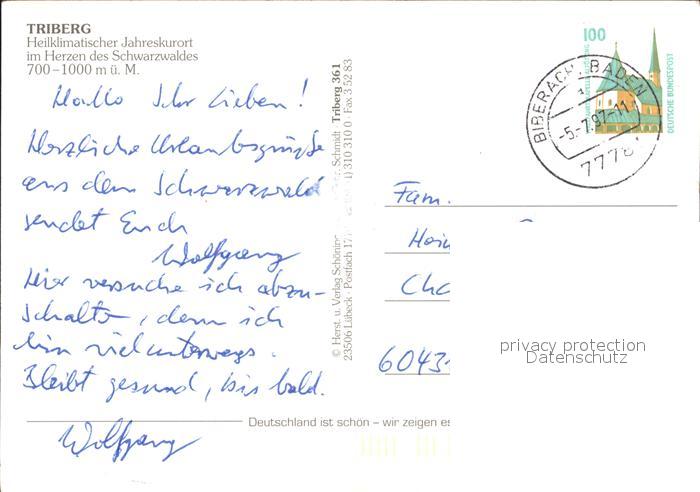 TRIBERG
Heilklimatischer Jahreskurort
im Herzen des Schwarzwaldes
700–1000 m ü. M.
Hallo Ihr Lieben!
Herzliche Urlaubsgrüße
aus dem Schwarzwald
sendet Euch
Wolfgang
Hier versuche ich abzu-
schalten, denn ich
bin viel unterwegs.
Bleibt gesund, bis bald.
Wolfgang
Deutschland ist schön – wir zeigen es
© Herst. u. Verlag Schöning
Schmidt Triberg 361
23506 Lübeck · Postfach 17 310 310 0 · Fax 3 52 83
100
DEUTSCHE BUNDESPOST
BIBERACH, BADEN
-5.-7.97-11
7778
Fam.
Hein
Cha
6043
privacy protection
Datenschutz